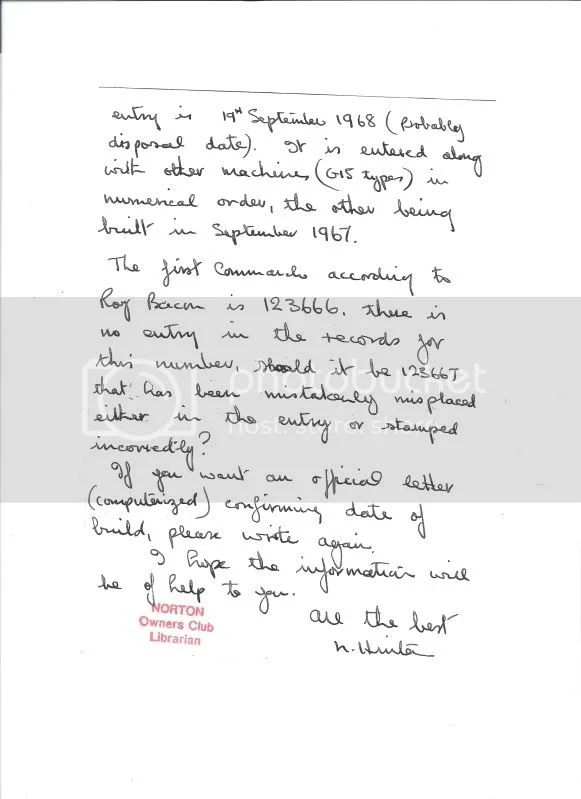 entry is 19th September 1968 (Probably
disposal date). It is entered along
with other machines (G15 types) in
numerical order, the other being
built in September 1967.
The first Commando according to
Roy Bacon is 123666, there is
no entry in the records for
this number, should it be 123667
that has been mistakenly misplaced
either in the entry or stamped
incorrectly?
If you want an official letter
(computerized) confirming date of
build, please wrote again.
I hope the information will
be of help to you.
All the best
NORTON
Owners Club
Librarian
photobucket